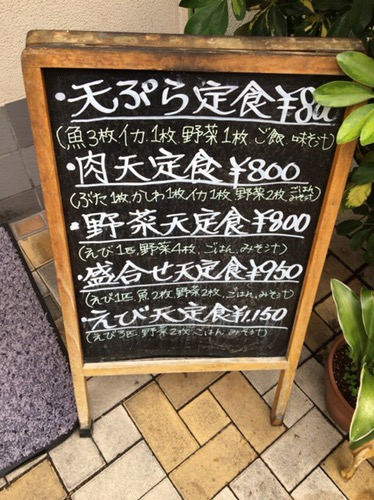 ・天ぷら定食¥800
(魚3枚イカ1枚.野菜1枚.ご飯.味そ汁)
・肉天定食¥800
(ぶた1枚.かしわ1枚イカ1枚.野菜2枚.ごはん.みそ汁)
・野菜天定食¥800
(えび1匹.野菜4枚.ごはん.みそ汁)
・盛合せ天定食¥950
(えび1匹.魚2枚.野菜2枚.ごはん.みそ汁)
・えび天定食¥1,150
(えび3匹.野菜2枚.ごはん.みそ汁)